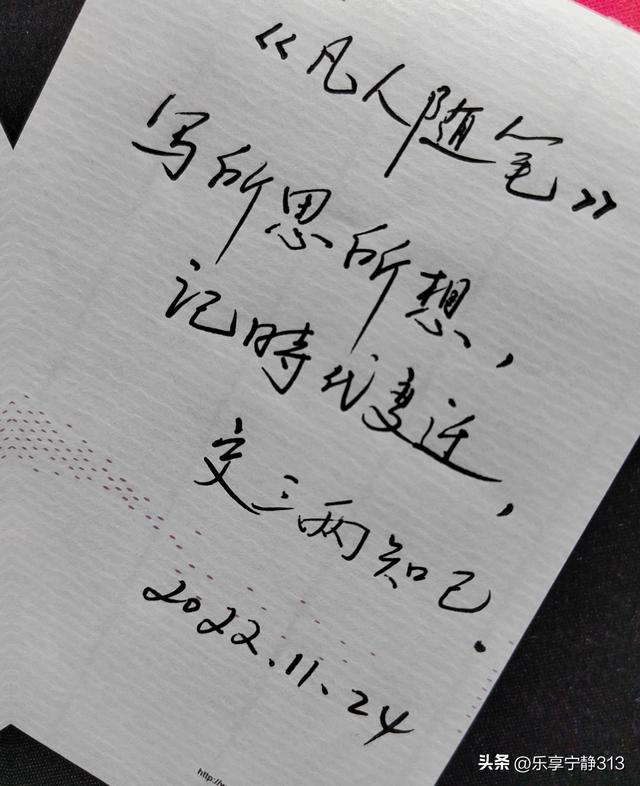 《凡人随笔》
写所思所想,
记時代变迁,
交三两知己.
2022.11.24
http://
头条 @乐享宁静313